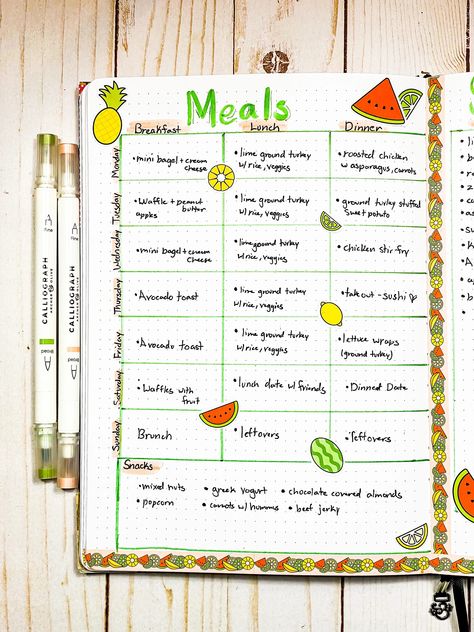 Meals
Breakfast
Lunch
Dinner
Monday
• mini bagel + cream
cheese
• lime ground turkey
w/ rice, veggies
• roasted chicken
w asparagus, carrots
Tuesday
• Waffle + peanut
apples butter
• lime ground turkey
w/ rice, veggies
• ground turkey stuffed
sweet potato
Wednesday
• mini bagel + cream
cheese
• lime ground turkey
w/ rice, veggies
• chicken stir-fry
Thursday
• Avocado toast
• lime ground turkey
w/ rice, veggies
• takeout - sushi ♡
Friday
• Avocado toast
• lime ground turkey
w/ rice, veggies
• lettuce wraps
(ground turkey)
Saturday
• Waffles with
fruit
• lunch date w/ friends
• Dinned Date
Sunday
Brunch
• leftovers
• leftovers
Snacks
• mixed nuts
• greek yogurt
• chocolate covered almonds
• popcorn
• carrots w/ hummus
• beef jerky
A
fine
CALLIOGRAPH
ARCHER & OLIVE
CALLIOGRAPH
ARCHER & OLIVE